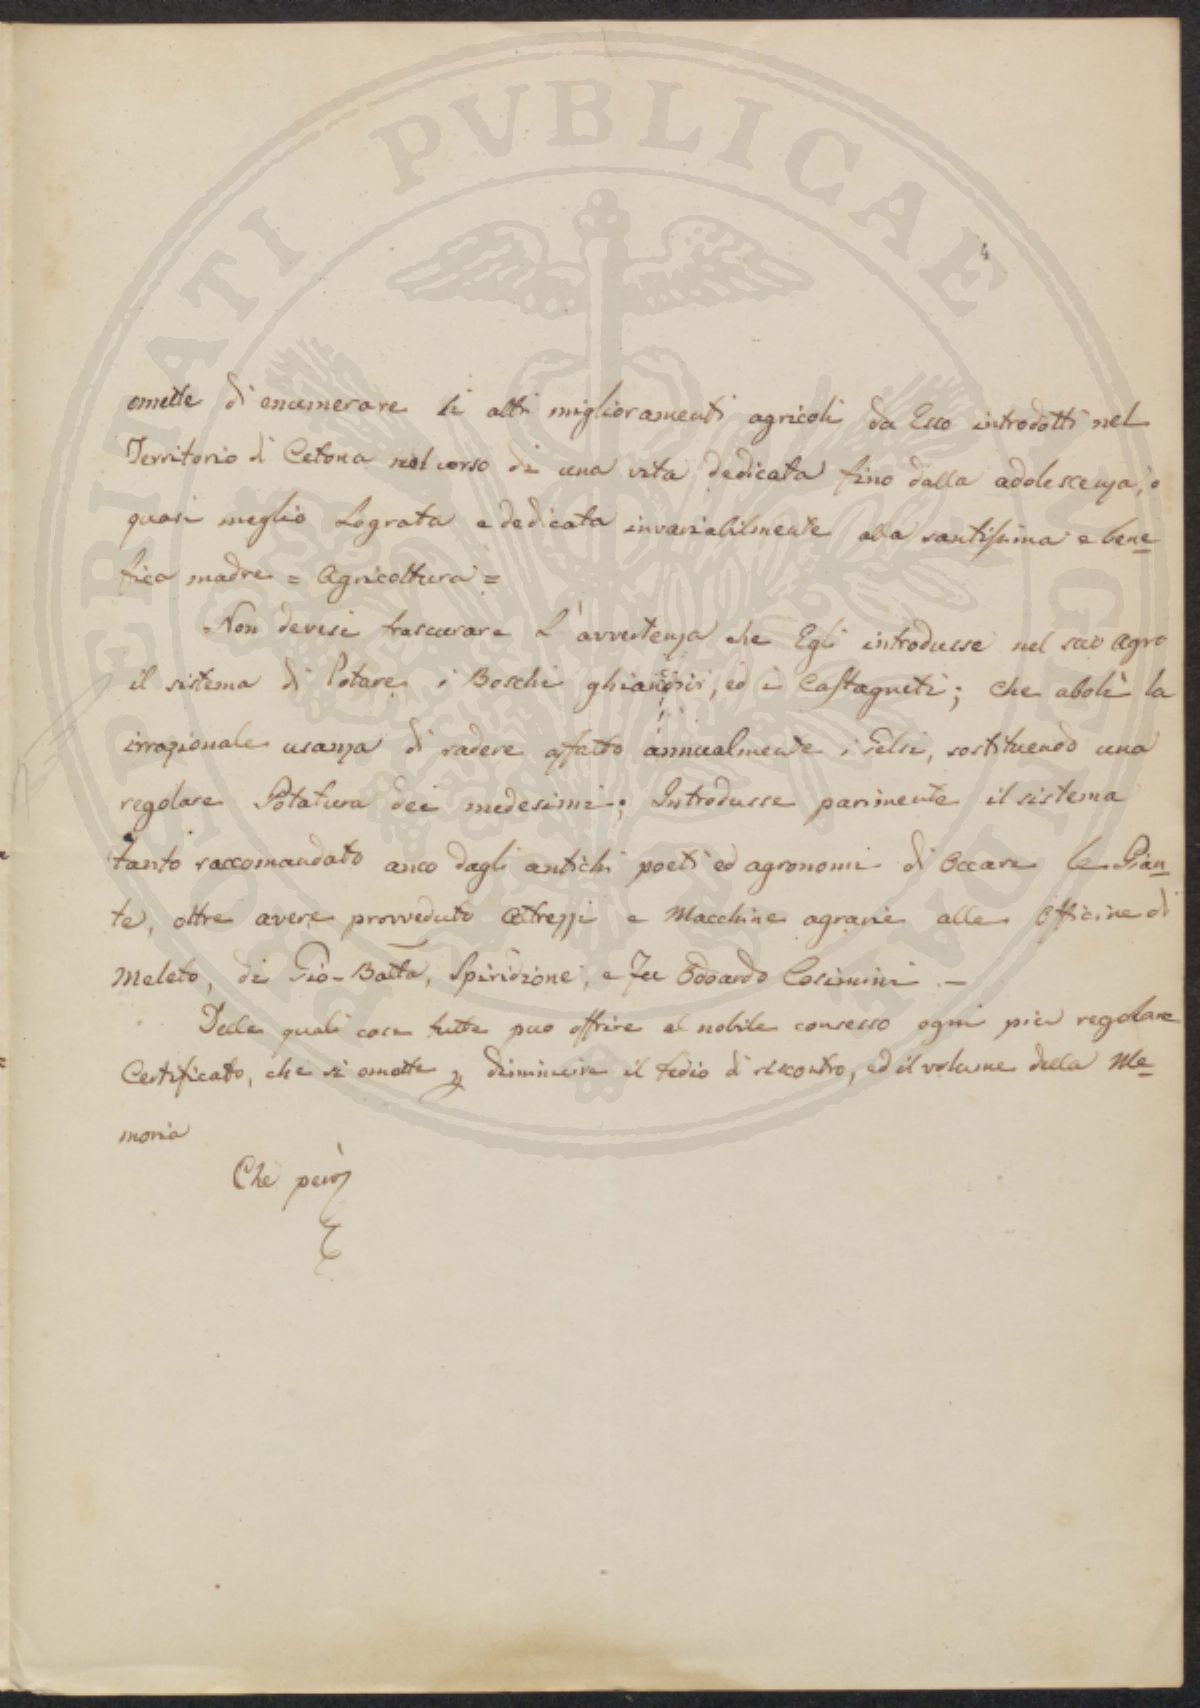 4
omette di enumerare li altri miglioramenti agricoli da Esso introdotti nel
Territorio di Cetona nel corso di una vita dedicata fino dalla adolescenza, o
quasi meglio Lograta e dedicata invariabilmente alla santissima e bene=
fica madre = Agricoltura =
Non devesi trascurare L'avvertenza che Egli introdusse nel suo agro
il sistema di Potare i Boschi ghiandosi, ed i Castagneti; che abolì la
irrazionale usanza di radere affatto annualmente i Gelsi, sostituendo una
regolare Potatura dei medesimi; Introdusse parimente il sistema
tanto raccomandato anco dagli antichi poeti ed agronomi di Occare le Pian=
te, oltre avere provveduto Attrezzi e Macchine agrarie alle Officine di
Meleto, di Gio-Batta, Spiridione, e Fu Odoardo Cosimini. –
Delle quali cose tutte può offrire al nobile consesso ogni più regolare
Certificato, che si omette diminuire il tedio di riscontro, ed il volume della Me=
moria
Che però
PERIATI PVBLICAE